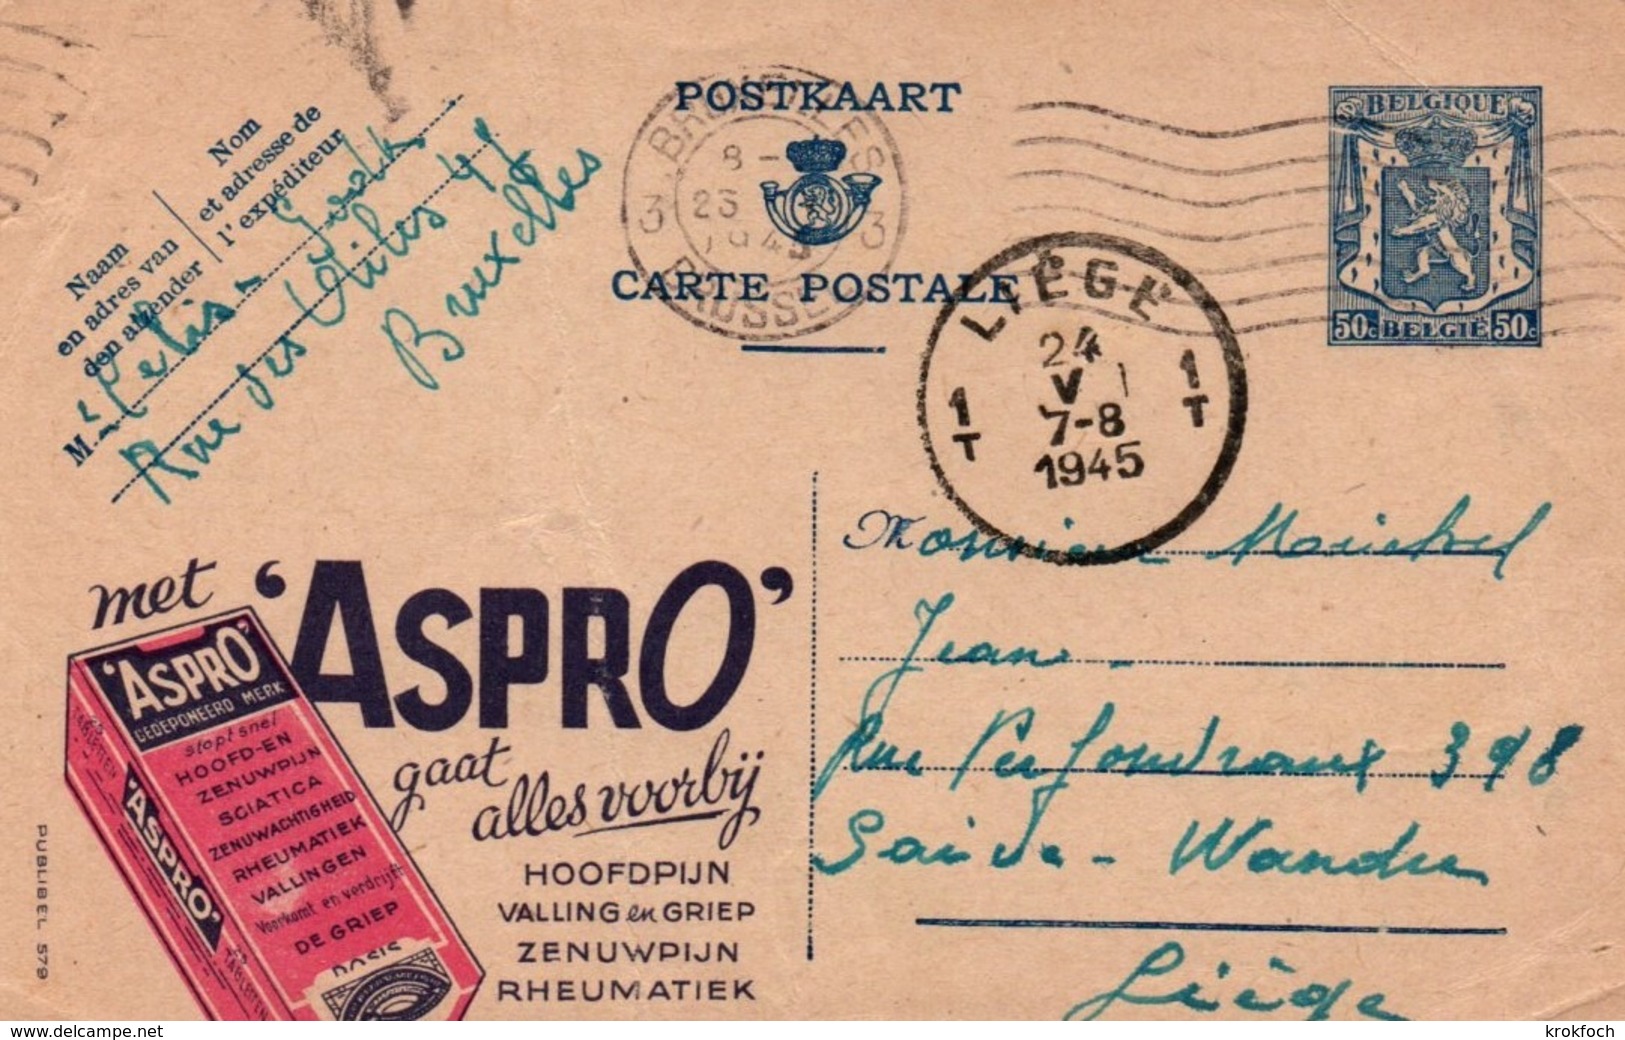 POSTKAART
CARTE POSTALE
BELGIQUE
50c BELGIË 50c
BRUXELLES
8 -
23
1945
3 3
BRUSSEL
LIÈGE
24
V
7-8
1945
1T 1T
Nom
et adresse de
l'expéditeur
Naam
en adres van
den afzender
M.
Rue des Ailes 44
Bruxelles
Monsieur
Jean
Rue 398
Liège
met 'ASPRO'
gaat
alles voorbij
HOOFDPIJN
VALLING en GRIEP
ZENUWPIJN
RHEUMATIEK
'ASPRO'
GEDEPONEERD MERK
stopt snel
HOOFD-EN
ZENUWPIJN
SCIATICA
ZENUWACHTIGHEID
RHEUMATIEK
VALLINGEN
Voorkomt en verdrijft
DE GRIEP
DOSIS
TABLETTEN
'ASPRO'
TABLETEN
PUBLIBEL 579
www.delcampe.net
krokfoch